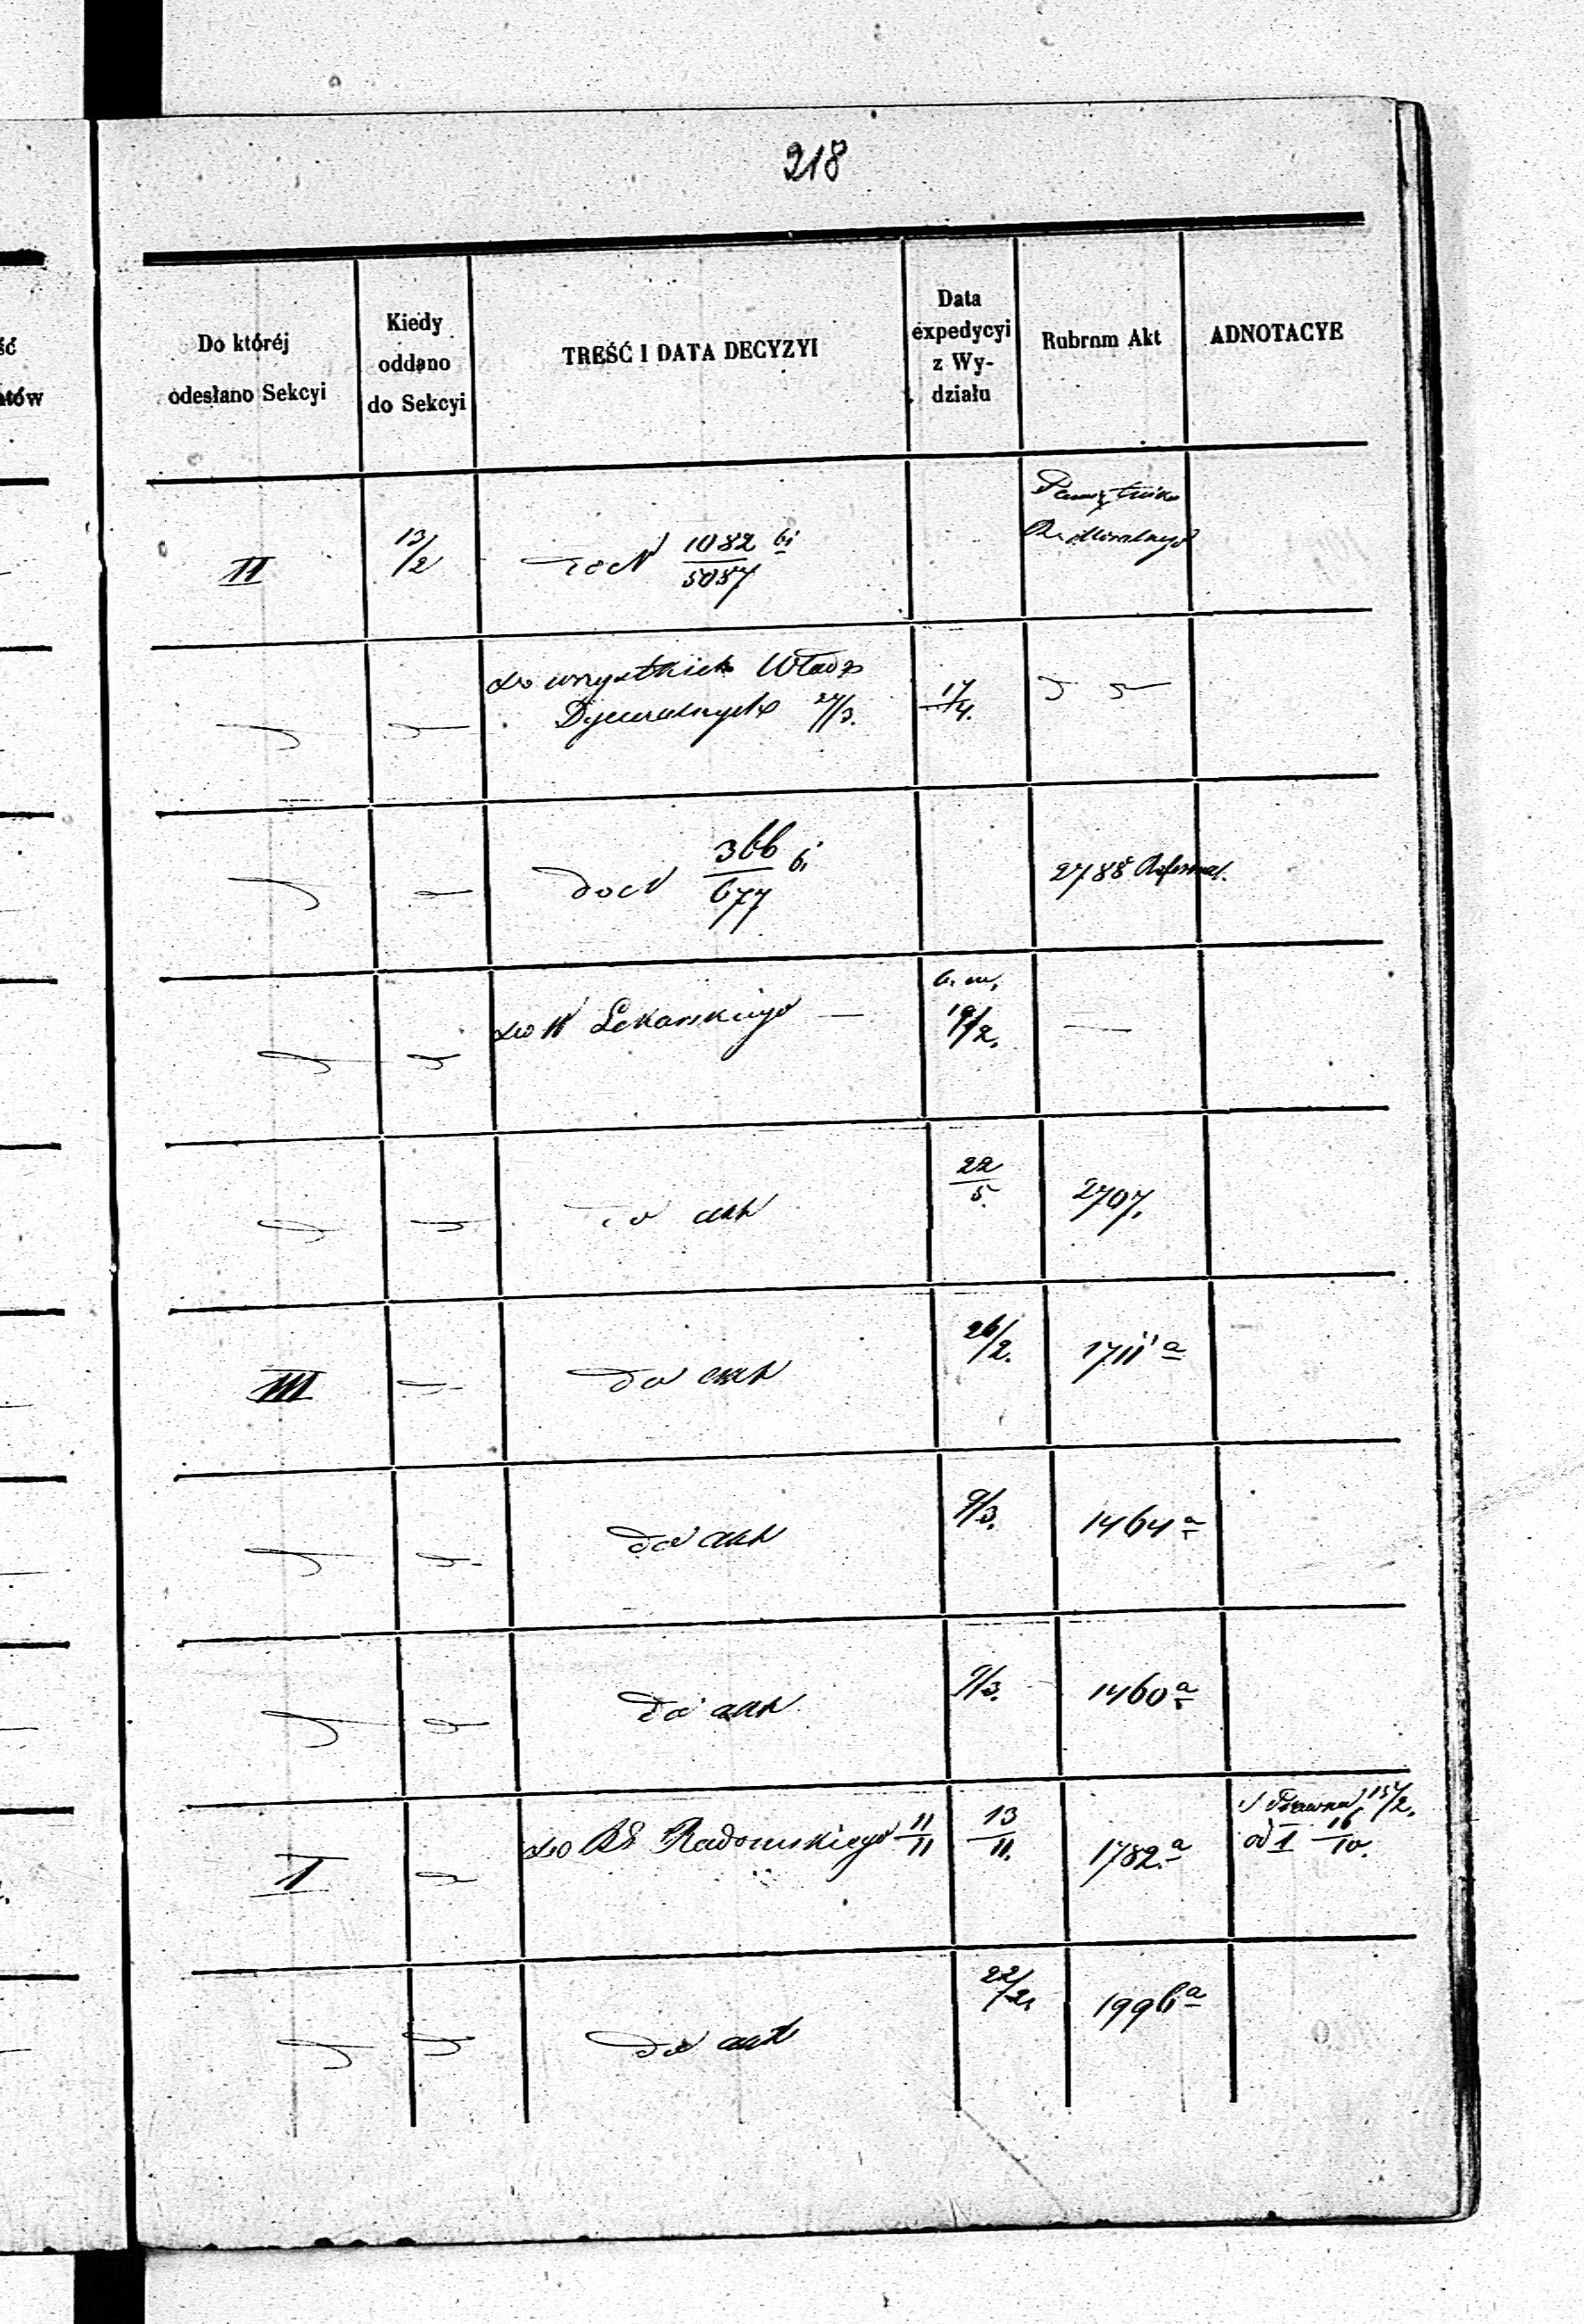 218
ść
ntów
Do któréj
odesłano Sekcyi
Kiedy
oddano
do Sekcyi
TREŚĆ I DATA DECYZYI
Data
expedycyi
z Wy-
działu
Rubrum Akt
ADNOTACYE
II
13/2
do N 1082/5087 bi
do wszystkich Władz
Dyecezalnych 27/3.
17/4.
do N 366/677 bi
2788 Reformat.
do W Lekarskiego —
b. m.
19/2.
—
do akt
22/5.
2707.
III
do akt
26/2.
1711 a
do akt
9/3.
1464 a
do akt
9/3.
1460 a
I
do RG Radomskiego 11/11
13/11.
1782. a
15/2.
od I 16/10.
do akt
22/2
1996 a